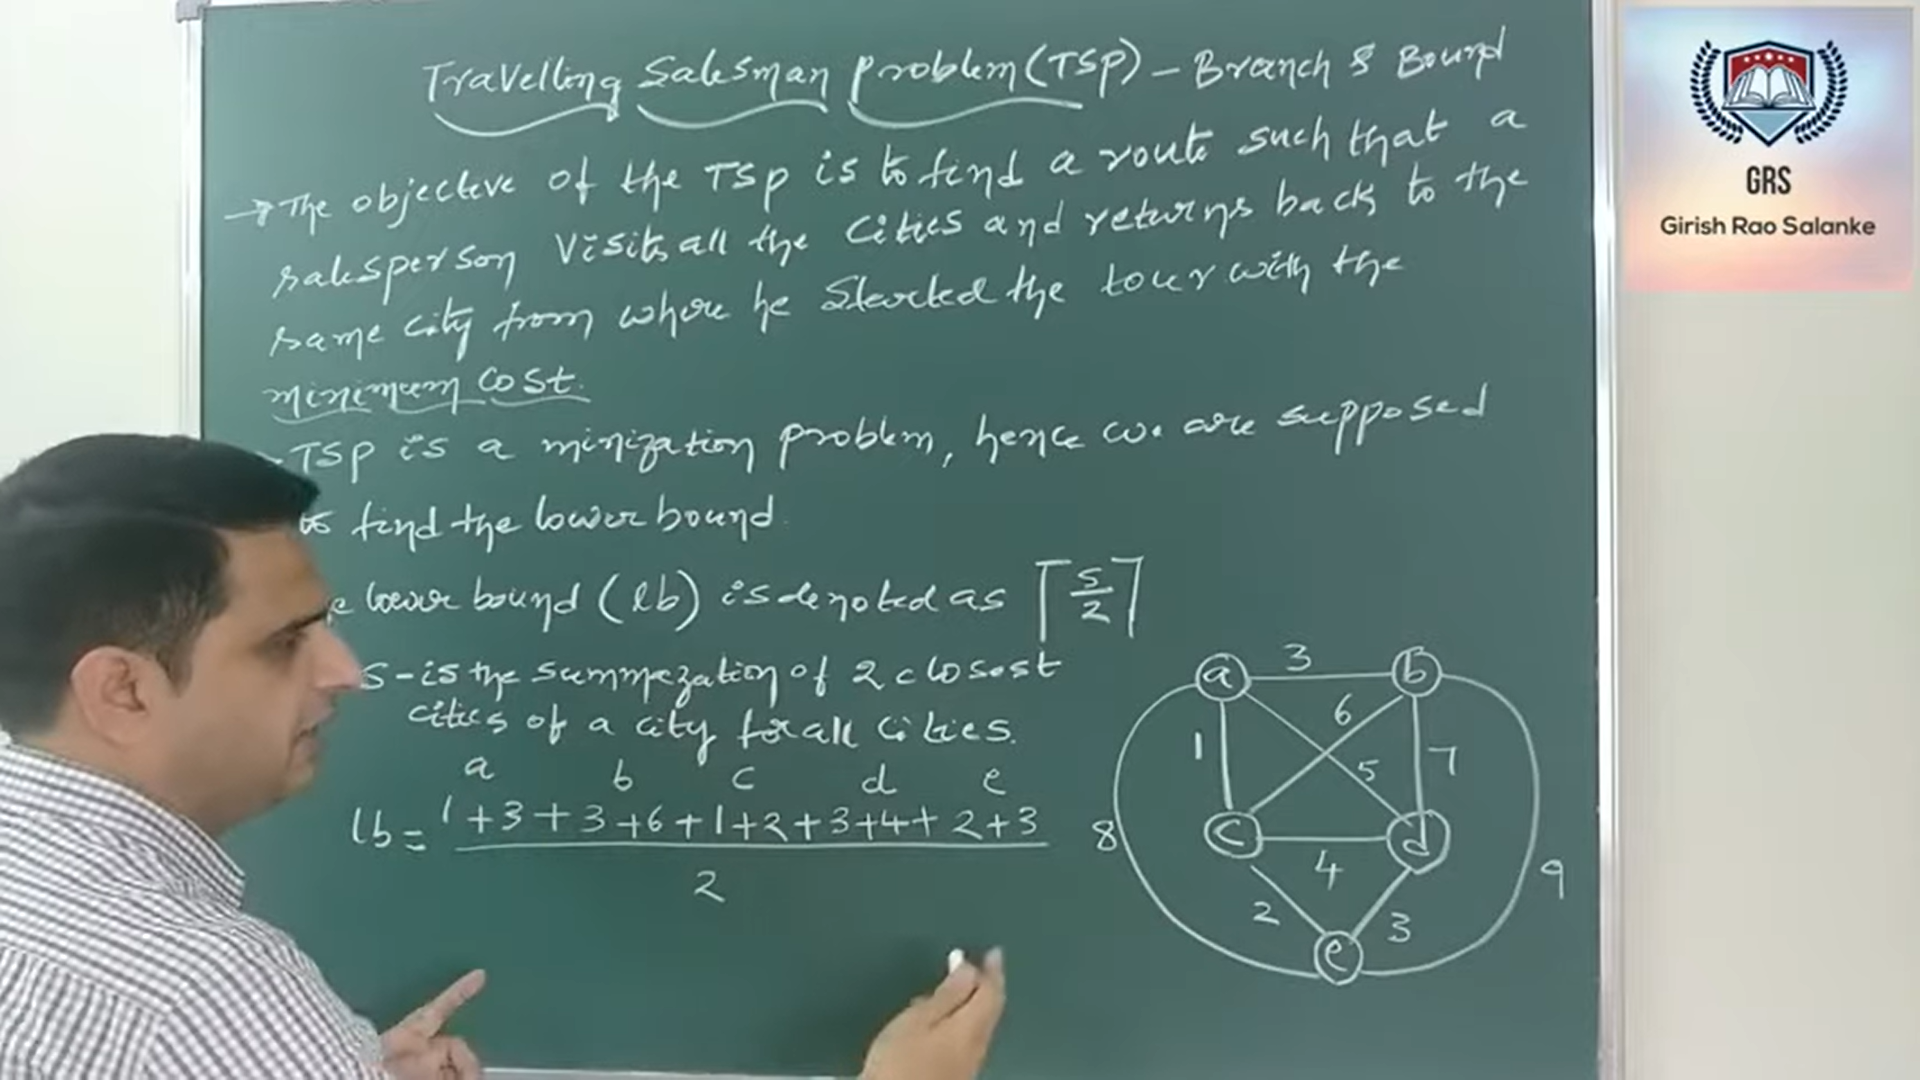 Travelling Salesman Problem (TSP) - Branch & Bound
→ The objective of the TSP is to find a route such that a
salesperson visits all the cities and returns back to the
same city from where he started the tour with the
minimum cost.
- TSP is a minization problem, hence we are supposed
to find the lower bound.
lower bound (lb) is denoted as ⌈s/2⌉
S - is the summezation of 2 closest
cities of a city for all cities.
a b c d e
lb = 1+3+3+6+1+2+3+4+2+3
2
a 3 b
6
1 5 7
c d
8 4 9
2 3
e
GRS
Girish Rao Salanke